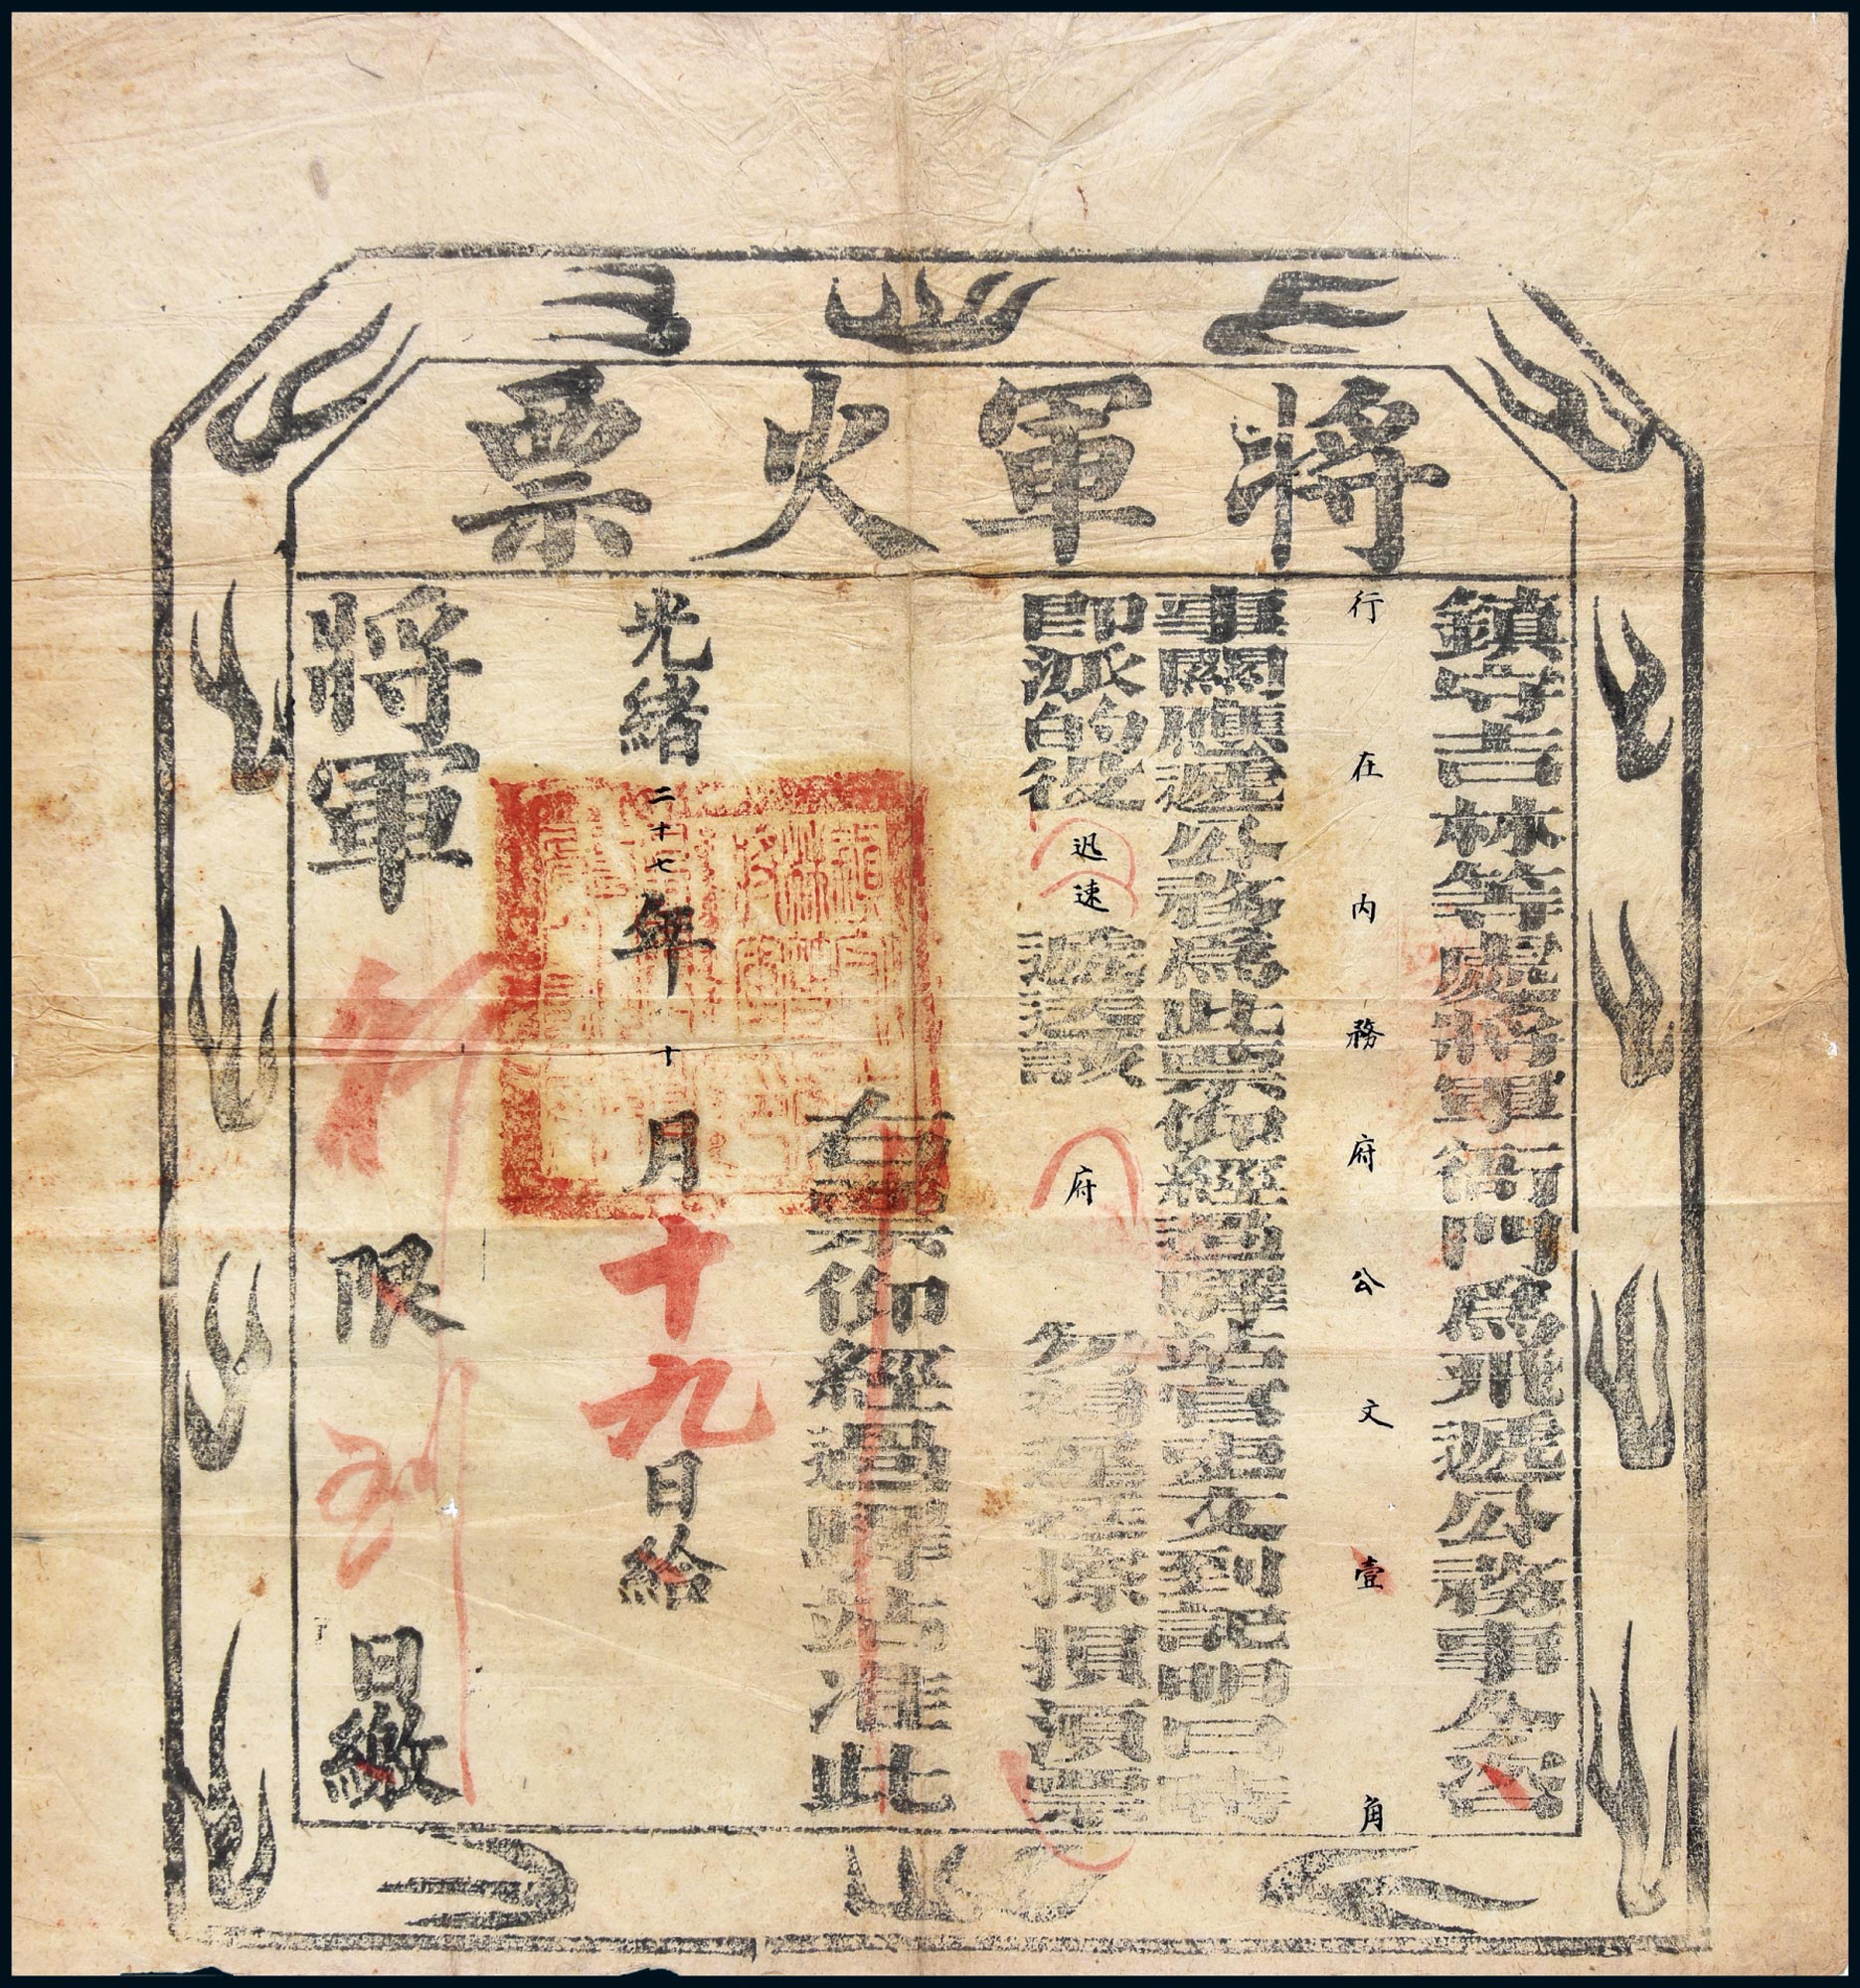 將軍火票
鎮守吉林等處將軍衙門爲飛遞公務事今咨
行在內務府公文壹角
事關應遞公務爲此票仰經過驛站官吏文到記明日時
即派的役迅速遞送該府勿稍遲延擦損須票
右票仰經過驛站准此
光緒二十七年十月十九日給
將軍
限到日繳